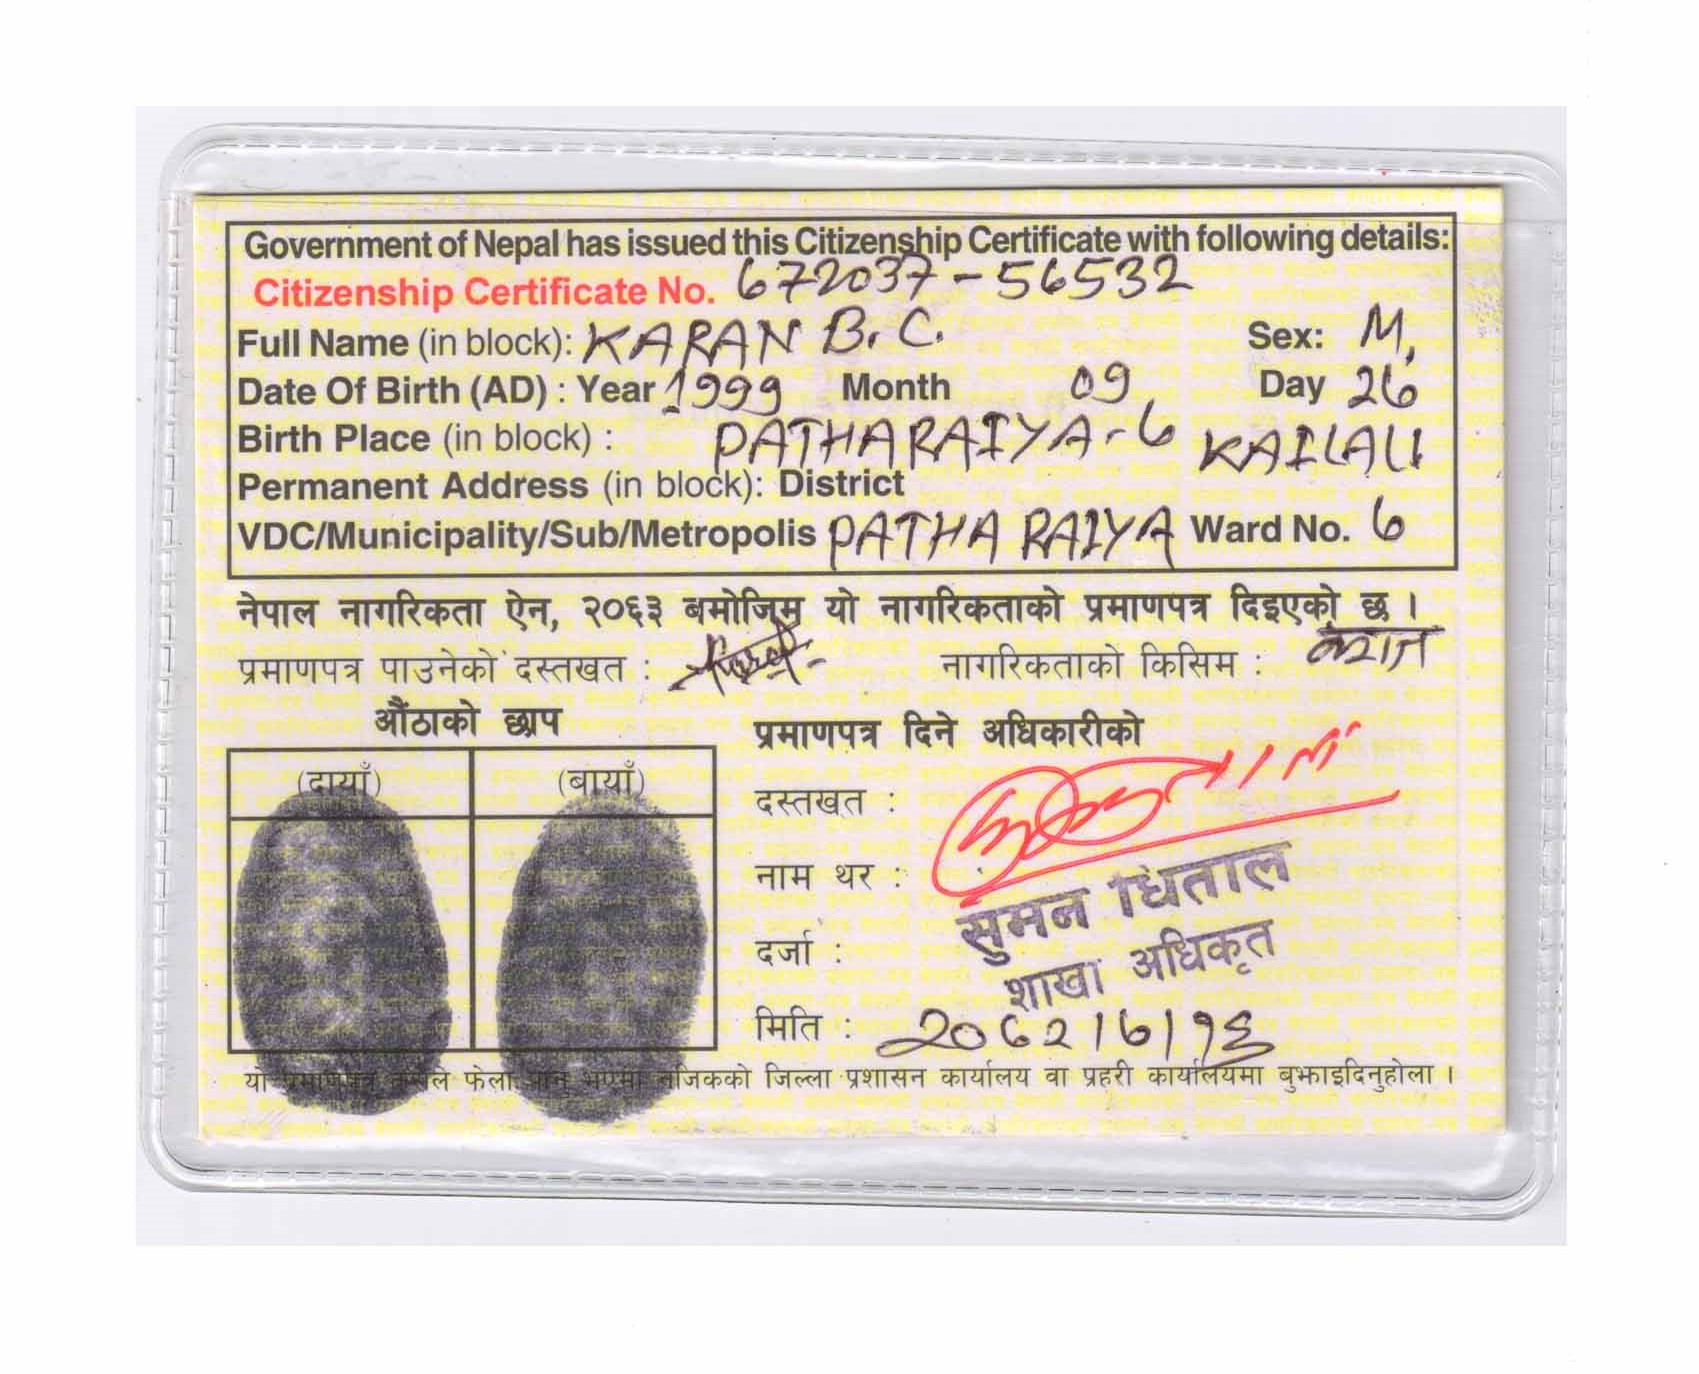 Government of Nepal has issued this Citizenship Certificate with following details:
Citizenship Certificate No. 672037-56532
Full Name (in block): KARAN B.C. Sex: M.
Date Of Birth (AD) : Year 1999 Month 09 Day 26
Birth Place (in block) : PATHARAIYA-6 KAILALI
Permanent Address (in block): District
VDC/Municipality/Sub/Metropolis PATHARAIYA Ward No. 6
नेपाल नागरिकता ऐन, २०६३ बमोजिम यो नागरिकताको प्रमाणपत्र दिइएको छ ।
प्रमाणपत्र पाउनेको दस्तखत : नागरिकताको किसिम : वंशज
औंठाको छाप
(दायाँ) (बायाँ)
प्रमाणपत्र दिने अधिकारीको
दस्तखत :
नाम थर : सुमन धिताल
दर्जा : शाखा अधिकृत
मिति :
यो प्रमाणपत्र कसैले फेला पारे भएमा नजिकको जिल्ला प्रशासन कार्यालय वा प्रहरी कार्यालयमा बुझाइदिनुहोला ।